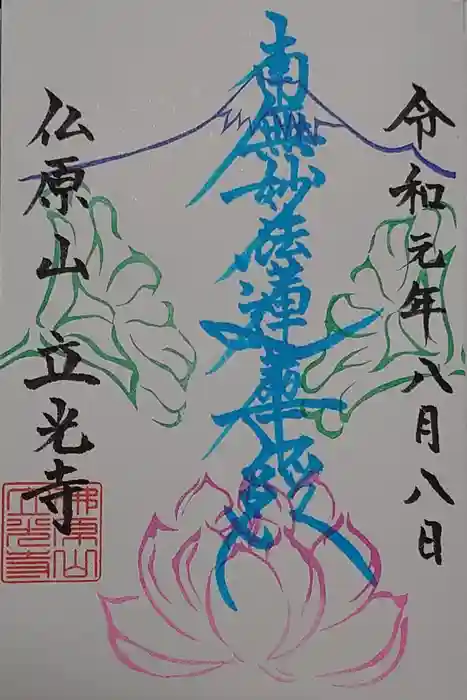 令和元年八月八日
南無妙法蓮華經
仏原山立光寺
佛原山
立光寺